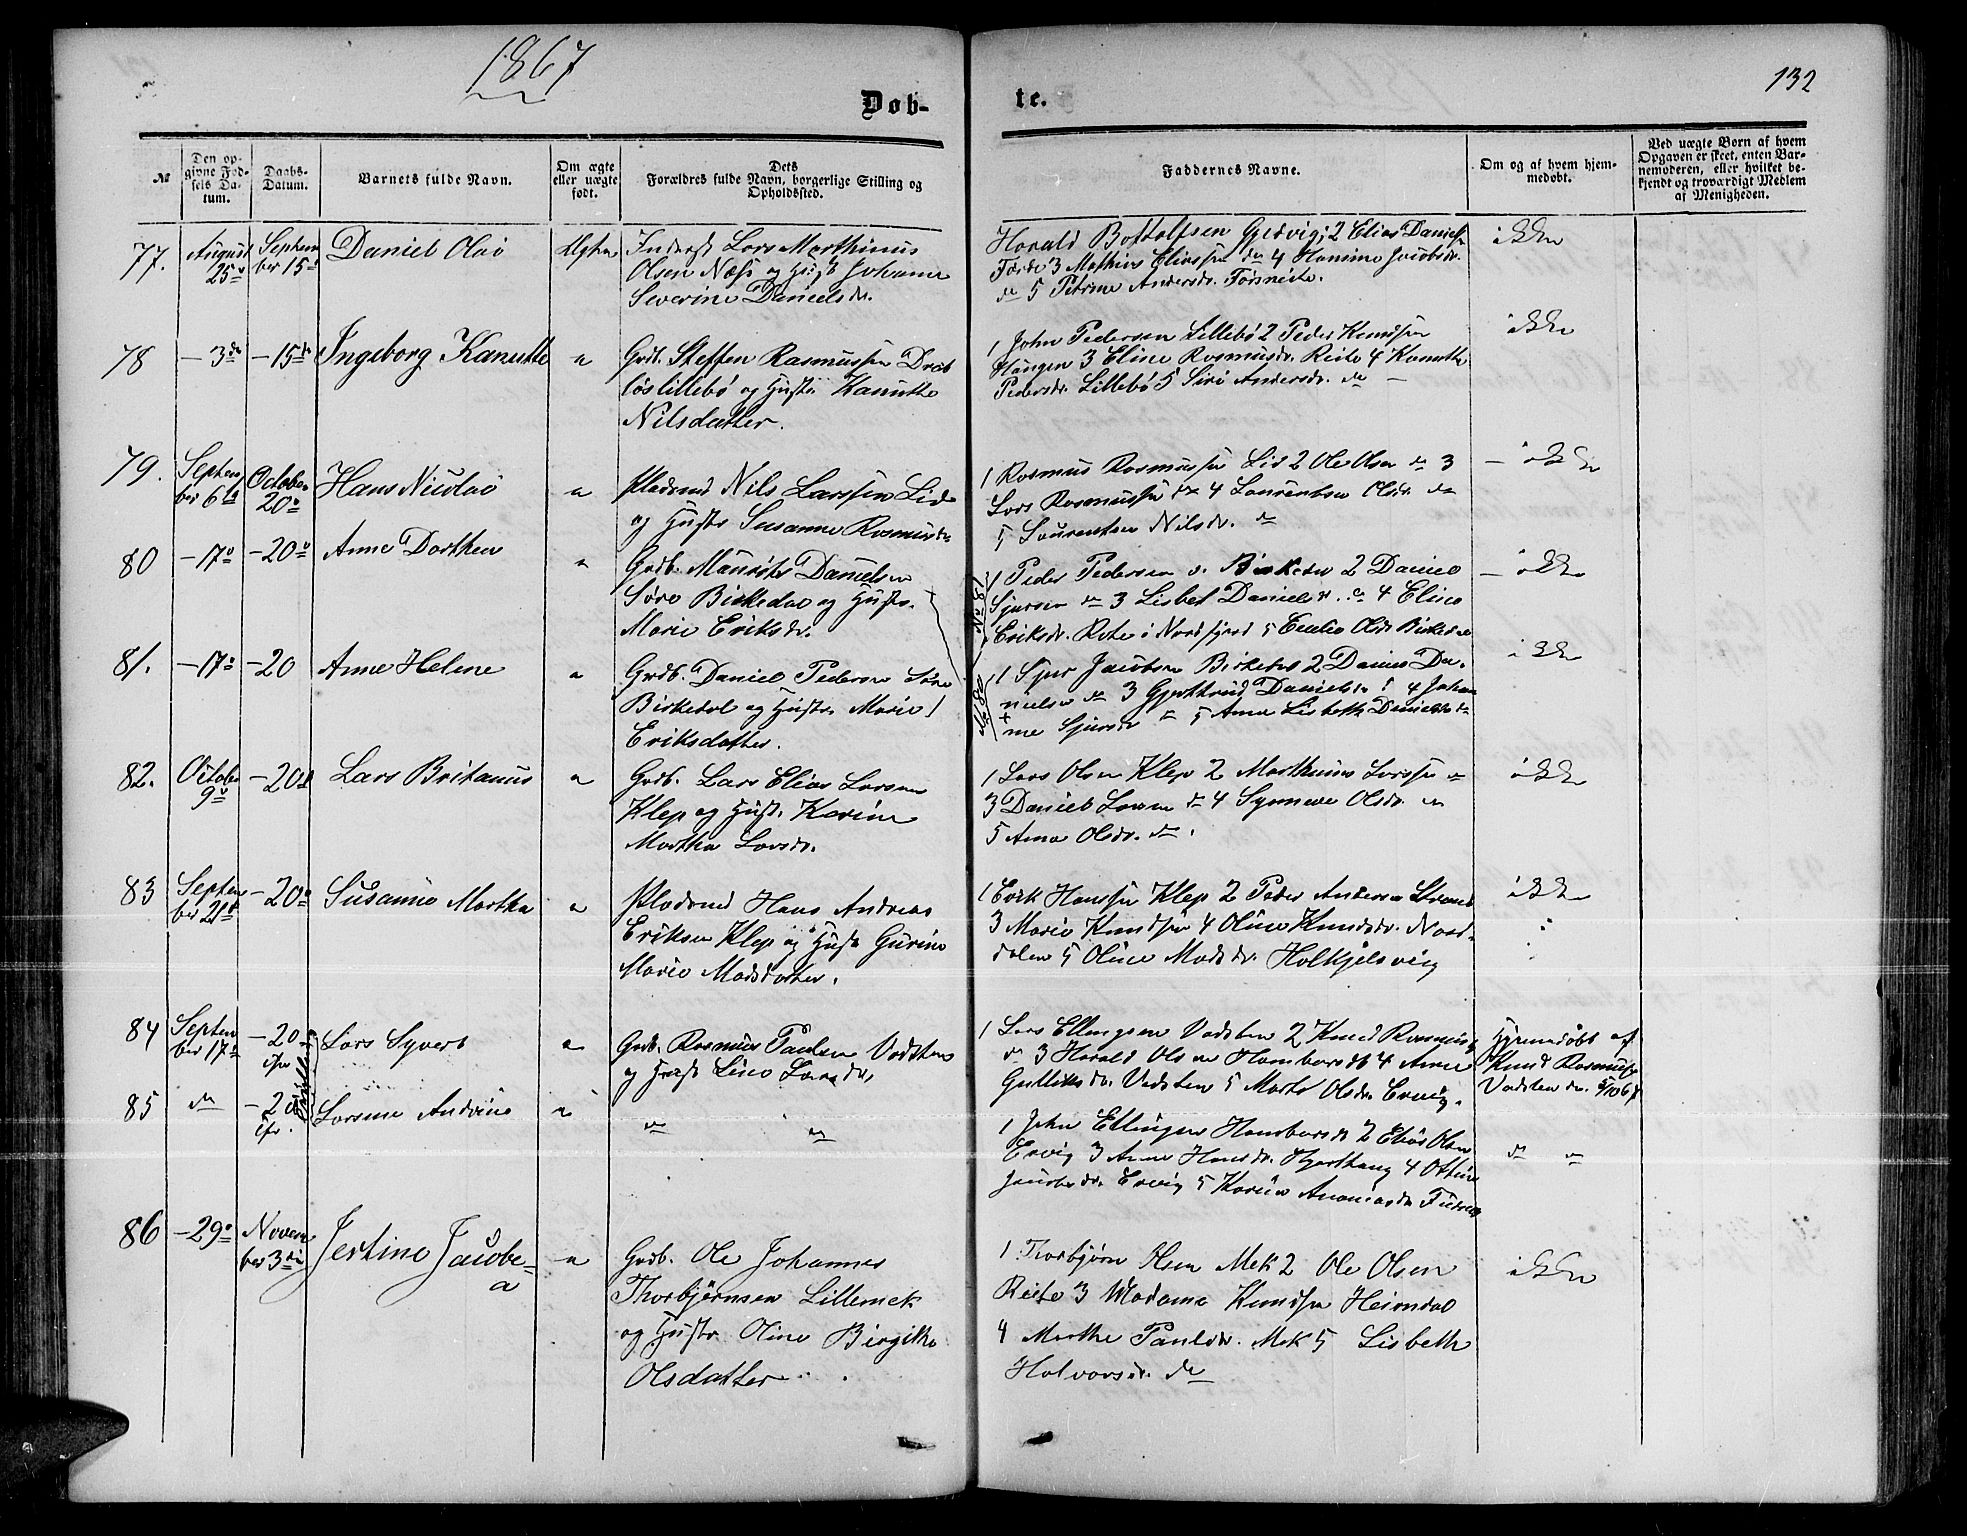 1867
132
Døb-
te.
№
Den op-
givne Fød-
sels Da-
tum.
Daabs-
Datum.
Barnets fulde Navn.
Om ægte
eller uægte
født.
Dets
Forældres fulde Navn, borgerlige Stilling og
Opholdssted.
Faddernes Navne.
Om og af hvem hjem-
medøbt.
Ved uægte Børn af hvem
Opgaven er skeet, enten Bar-
nemoderen, eller hvilket be-
kjendt og troværdigt Medlem
af Menigheden.
77.
August
25
Septem
ber 15
Daniel Olai
Ægte
Lars Marthinus
Olsen Næss og Hust Johanne
Severine Danielsdr.
Harald Bottolfsen 2 Elias Daniels
Førde 3 Mathias Eliassen do 4 Hansine Jacobsdr.
do 5 Petrine Andersdr. Førsneite.
ikke
78
- 3die
- 15de
Ingeborg Kanutte
"
Grdb. Steffen Rasmussen
Lillebø og Hustr Kanutte
Nilsdatter.
1 John Pedersen Lillebø 2 Peder Knudsen
Haugen 3 Eline Rasmusdr. Reite 4 Kanutte
Pedersdr. Lillebø 5 Siri Andersdr. do -
ikke
79.
Septem
ber 6te
October
20
Hans Nicolai
"
Pladsmd Nils Larssen Lid
og Hustr Susanne Rasmusdr
1 Rasmus Rasmussen Lid 2 Ole Olsen do 3
Lars Rasmussen do 4 Laurentse Olsdr. do
5 Laurentse Nilsdr. do
- ikke
80
- 17
- 20
Anne Dorthea
"
Grdb. Mauritz Danielsen
Søre Birkedal og Hustr.
Marie Eriksdr.
No 81
1 Peder Pedersen Birkedal 2 Daniel
Sjursen do 3 Lisbet Danielsdr. do 4 Eline
Eriksdr. Rote i Nordfjord 5 Olsdr Birkedal
- ikke
81.
- 17
- 20
Anne Helene
"
Grdb. Daniel Pedersen Søre
Birkedal og Hustr. Marie
Eriksdatter.
No 80
1 Sjur Jacobsen Birkedal 2 Daniel Da-
nielsen do 3 Gjertrud Danielsdr 4 Johan
ne Sjursdr do 5 Anne Lisbeth Danielsdr do
ikke
82.
Octobe
9
- 20
Lars Britanus
"
Grdb. Lars Elias Larsen
Klep og Hust. Karine
Martha Larsdr.
1 Lars Olsen Klep 2 Marthinus Larssen do
3 Daniel Larsen do 4 Synneve Olsdr. do
5 Anne Olsdr. do.
ikke
83
Septem
ber 21
- 20
Susanne Martha
"
Pladsmd Hans Andreas
Eriksen Klep og Hustr Gurine
Marie Madsdatter.
1 Erik Hanssen Klep 2 Peder Andersen Strand
3 Marie Knudsen 4 Oline Knudsdr. Nord-
dalen 5 Oline Madsdr. Holkjelsvig
ikke
84
Septem
ber 17
- 20
Lars Syvert
"
Grdb. Rasmus Paulsen Vadsten
og Hustr Line Larsdr.
1 Lars Ellingsen Vadsten 2 Knud Rasmus
do 3 Harald Olsen Hamborsdt 4 Anne
Gulliksdr. Vadsten 5 Marte Olsdr. Ervig.
Hjemmedøbt af
Knud Rasmus
Vadsten
85
do
- 20
Larsine Andrine
"
do
do
1 John Ellingsen Hamborsdt 2 Elias Olsen
Ervig 3 Anne Hansdr. Hjorthaug 4 Ottine
Jacobsdr. Ervig 5 Karine Ananiasdr
do do
86
- 29
Novem
ber 3die
Jertine Jacobe-
a
"
Grdb. Ole Johannes
Thorbjørnsen Lillemek
og Hustr Oline Birgitte
Olsdatter
1 Thorbjørn Olsen Mek 2 Ole Olsen
Reite 3 Madame Knudsen Heimdal
4 Marthe Paulsdr. Mek 5 Lisbeth
Halvorsdr. do
ikke